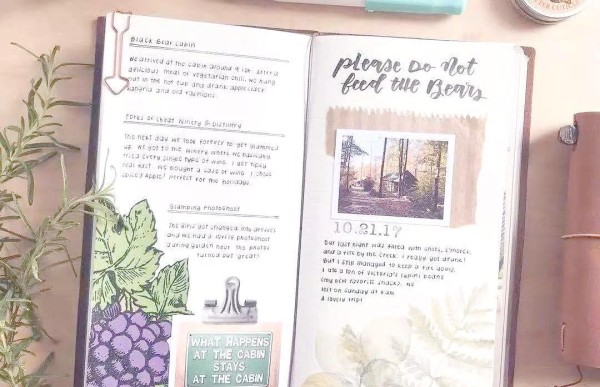 Black Bear Cabin
We arrived at the cabin around 9 ish. After a
delicious meal of vegetarian chili, we hung
out in the hot tub and drank
and old fashions.
Winery & Distillery
The next day we took forever to get glammed
up. We got to the winery where we basically
tried every single type of wine. I got tipsy
real fast. We bought a case of wine. I chose
spiced apple! Perfect for the holidays.
Glamping Photoshoot
The girls got changed into
and we had a little photoshoot
during golden hour. The photos
turned out great!
WHAT HAPPENS
AT THE CABIN
STAYS
AT THE CABIN
Please Do Not
feed the Bears
10.21.17
Our last night was filled with chili, s'mores,
and a fire by the creek. I really got drunk!
But I still managed to keep a fire going.
I ate a ton of Victoria's
(my new favorite snack). We
left on Sunday at
A lovely trip!